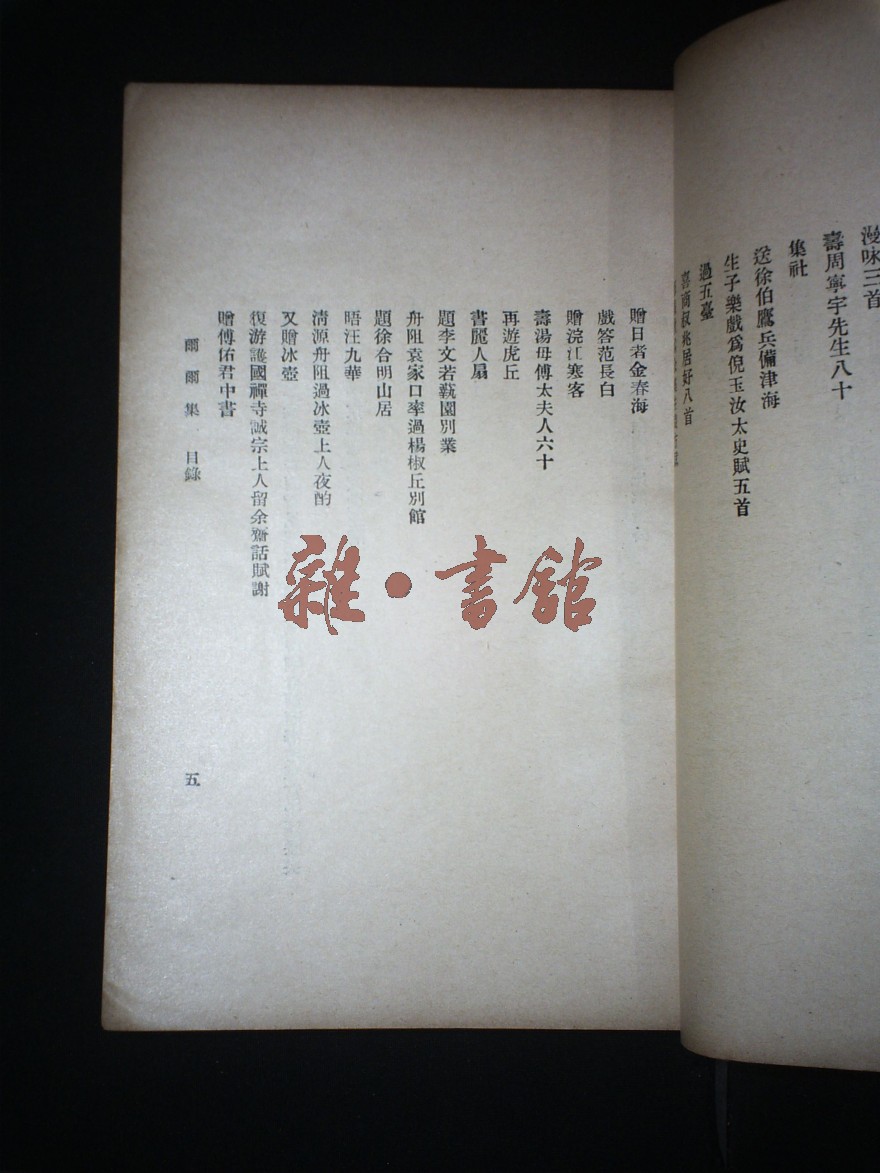 漫咏三首
壽周寧宇先生八十
集社
送徐伯鷹兵備津海
生子樂戲爲倪玉汝太史賦五首
過五臺
喜商叔兆居好八首
贈日者金春海
戲答范長白
贈浣江寒客
壽湯母傅太夫人六十
再遊虎丘
書麗人扇
題李文若蓺園別業
舟阻袁家口率過楊椒丘別館
題徐合明山居
晤汪九華
淸源舟阻過冰壺上人夜酌
又贈冰壺
復游護國禪寺誠宗上人留余齋話賦謝
贈傅佑君中書
爾爾集 目錄
五
雜·書館